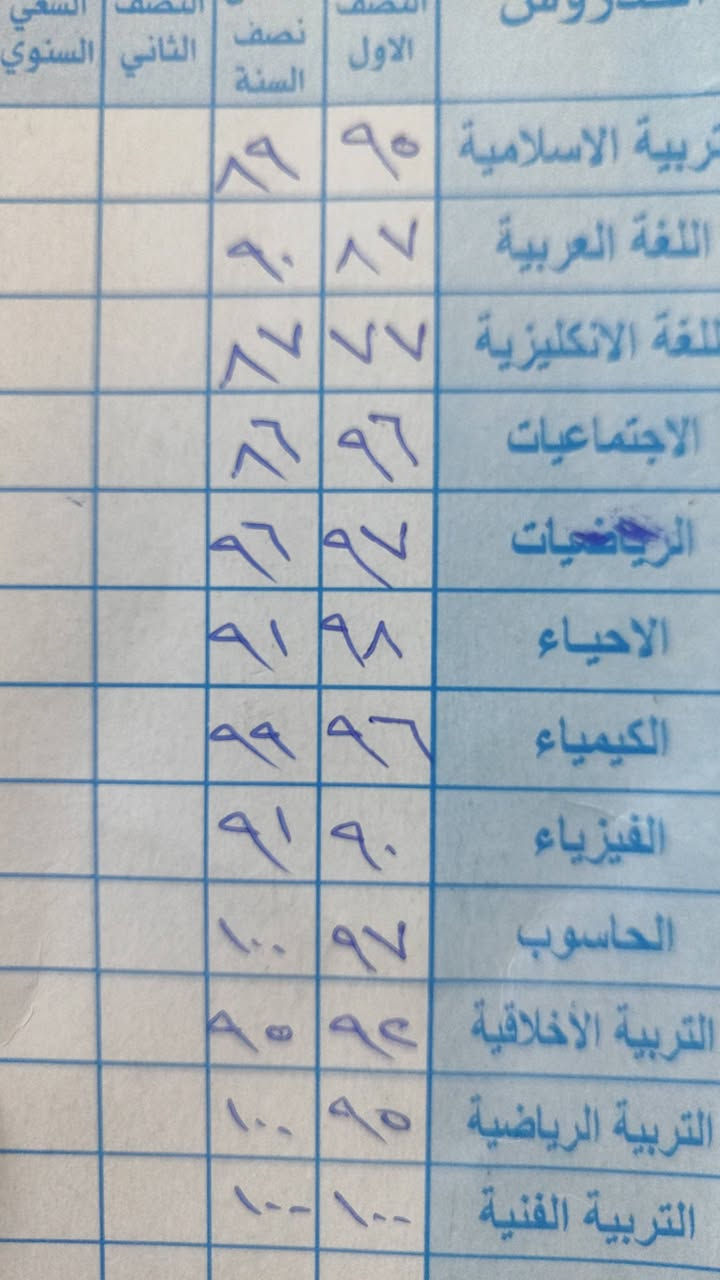 النصف نصف النصف السعي
الاول السنة الثاني السنوي
تربية الاسلامية ٩٥ ٨٩
اللغة العربية ٨٧ ٩٠
للغة الانكليزية ٧٧ ٨٧
الاجتماعيات ٩٦ ٨٦
الرياضيات ٩٧ ٩٦
الاحياء ٩٨ ٩١
الكيمياء ٩٦ ٩٩
الفيزياء ٩٠ ٩١
الحاسوب ٩٧ ١٠٠
التربية الأخلاقية ٩٤ ٩٥
التربية الرياضية ٩٥ ١٠٠
التربية الفنية ١٠٠ ١٠٠